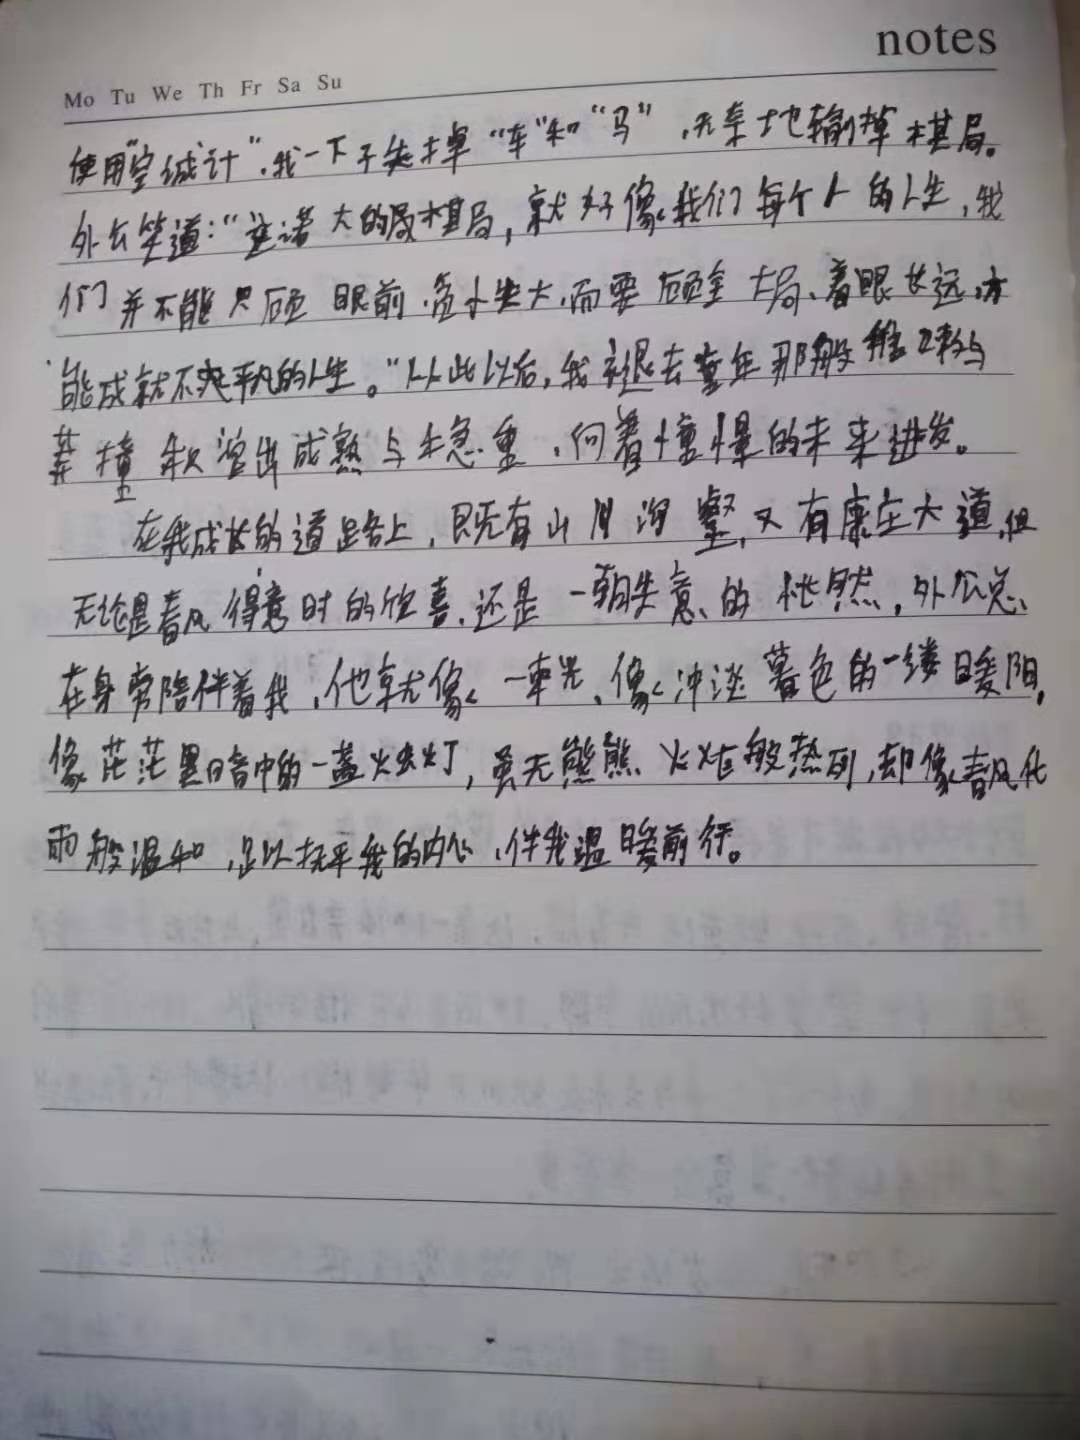 notes
Mo Tu We Th Fr Sa Su
使用"空城计",我一下子失掉"车"和"马",无奈地输掉棋局。
外公笑道:"这诺大的棋局,就好像我们每个人的人生,我
们并不能只顾眼前,贪小失大,而要顾全大局、着眼长远,方
能成就不平凡的人生。"从此以后,我褪去童年那般稚嫩与
莽撞,演出成熟与稳重,向着憧憬的未来进发。
在我成长的道路上,既有山川沟壑,又有康庄大道,但
无论是春风得意时的欣喜,还是一朝失意的怅然,外公总
在身旁陪伴着我,他就像一束光,像冲淡暮色的一缕暖阳,
像茫茫黑暗中的一盏灯,虽无熊熊火炬般热烈,却像春风化
雨般温和,足以抚平我的内心,伴我温暖前行。